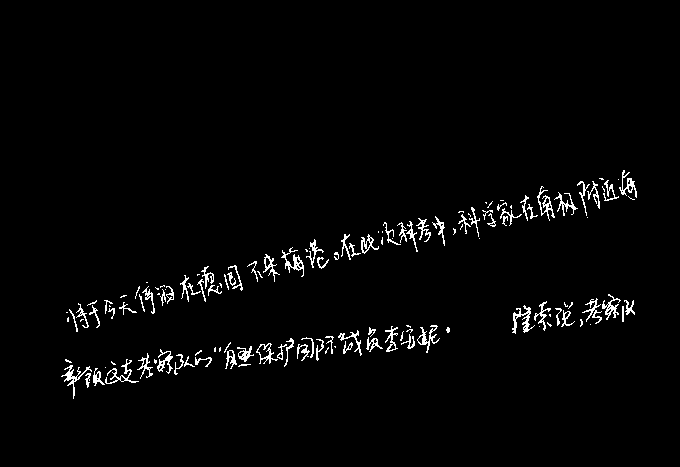 将于今天停泊在德国不来梅港。在此次科考中,科学家在南极附近海
率领这支考察队的“自然保护国际成员李安妮。 隆索说,考察队